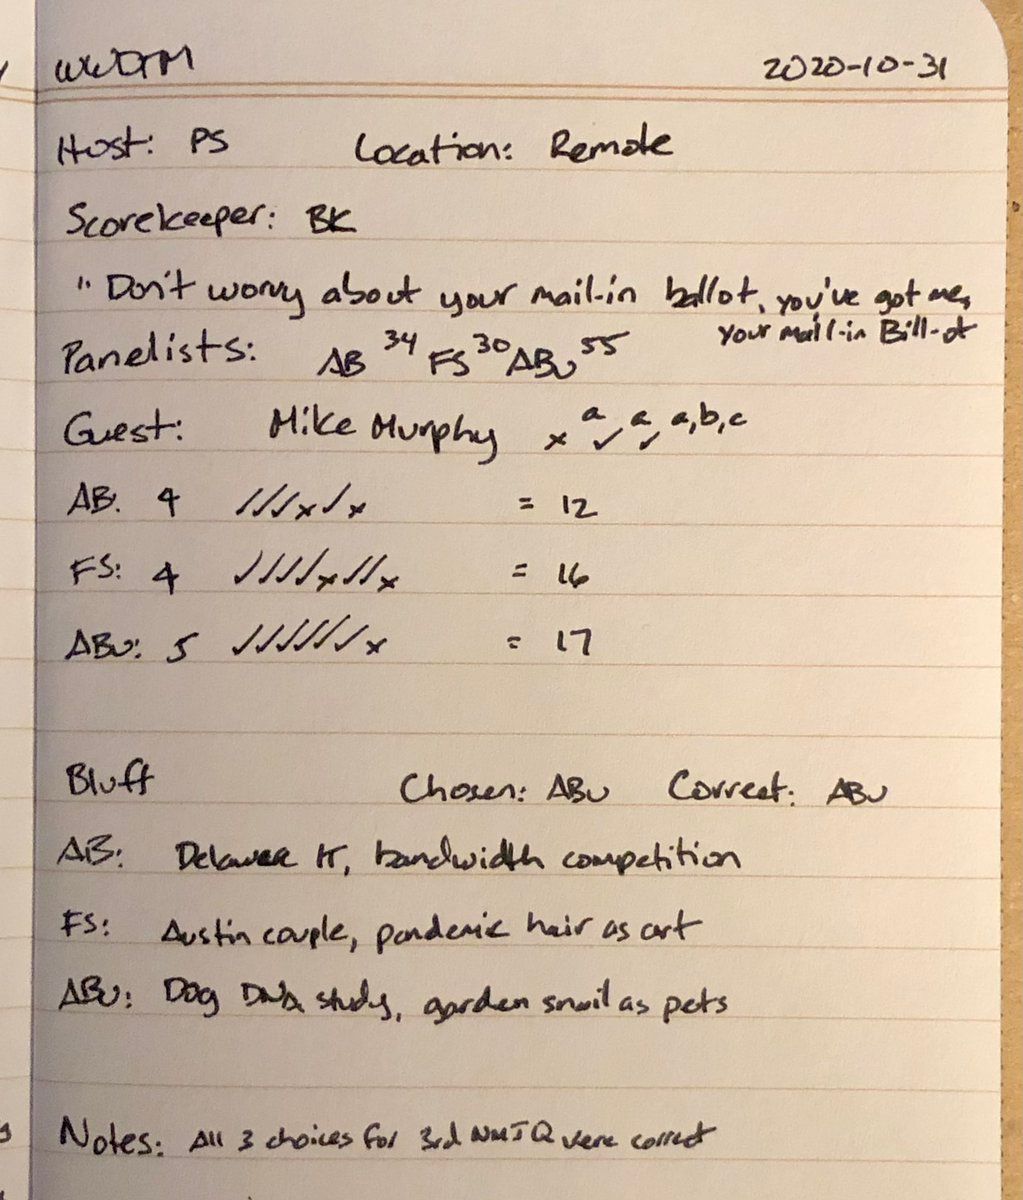 WWDTM 2020-10-31
Host: PS Location: Remote
Scorekeeper: BK
"Don't worry about your mail-in ballot, you've got me,
your mail-in Bill-ot
Panelists: AB 34 FS 30 ABu 55
Guest: Mike Murphy × a ✓ a ✓ a,b,c
AB: 4 ✓✓✓×✓× = 12
FS: 4 ✓✓✓✓×✓✓× = 16
ABu: 5 ✓✓✓✓✓✓× = 17
Bluff Chosen: ABu Correct: ABu
AB: Delaware IT, bandwidth competition
FS: Austin couple, pandemic hair as art
ABu: Dog DNA study, garden snail as pets
Notes: All 3 choices for 3rd NMJQ were correct